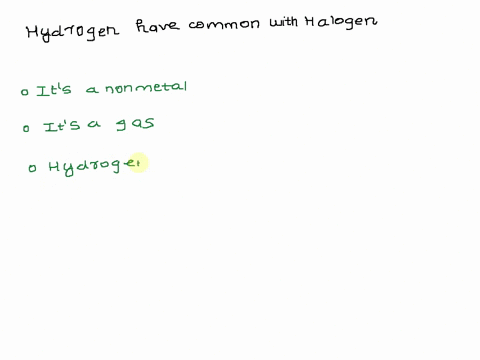 Hydrogen have common with Halogen
It's a nonmetal
It's a gas
Hydroge